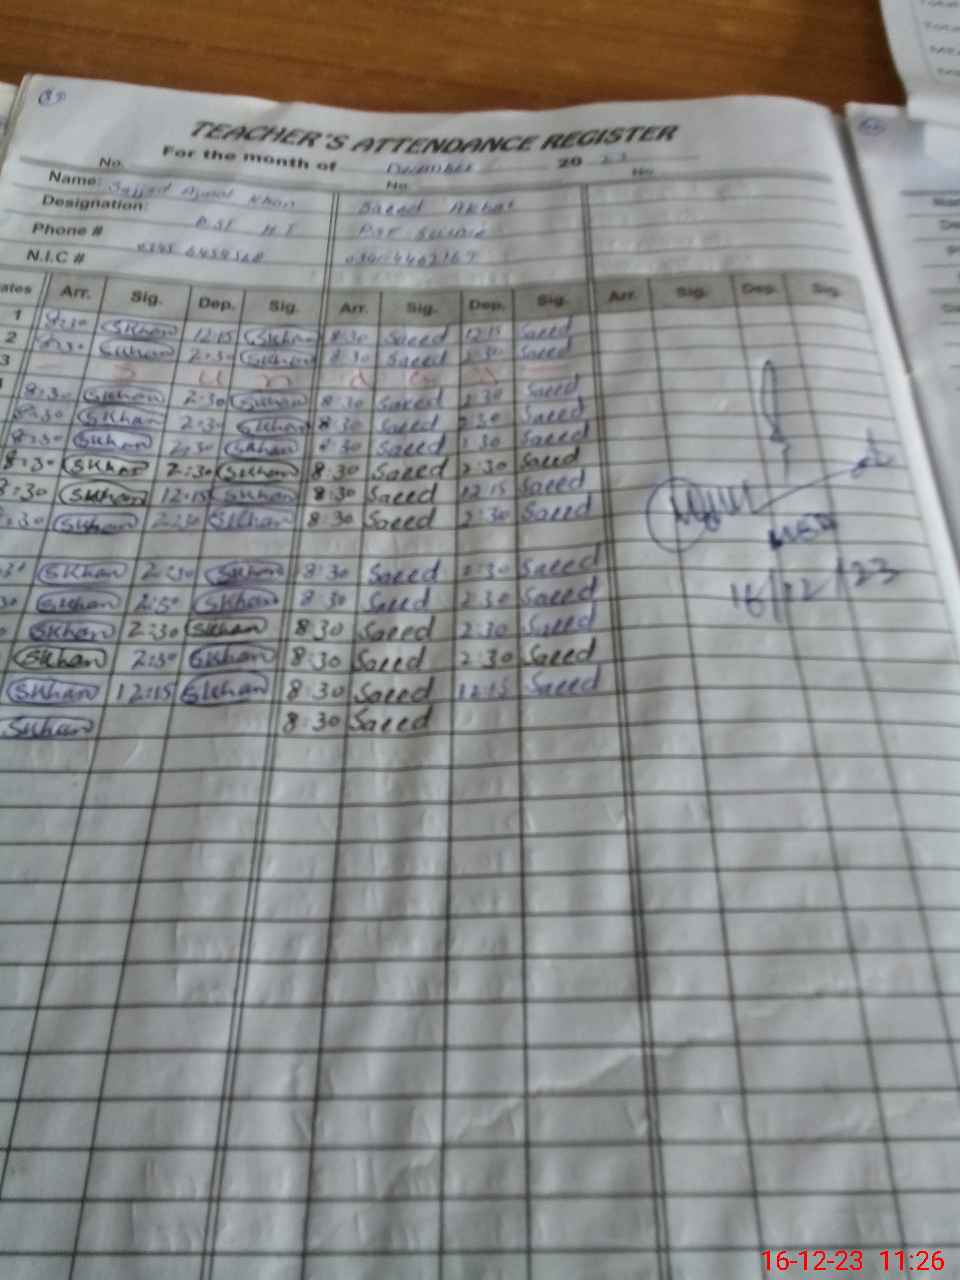 TEACHER'S ATTENDANCE REGISTER
For the month of December 20 23
No. No No
Name: Sajjad Ajmal Khan Saeed Akbar
Designation: PST HT PST
Phone #
N.I.C #
ates Arr. Sig. Dep. Sig. Arr. Sig. Dep. Sig. Arr. Sig. Dep. Sig.
1 8:30 SKhan 12:15 SKhan 8:30 Saeed 12:15 Saeed
2 8:30 SKhan 2:30 SKhan 8:30 Saeed 2:30 Saeed
3 S u n d a y
8:30 SKhan 2:30 SKhan 8:30 Saeed 2:30 Saeed
8:30 SKhan 2:30 SKhan 8:30 Saeed 2:30 Saeed
8:30 SKhan 2:30 SKhan 8:30 Saeed 2:30 Saeed
8:30 SKhan 2:30 SKhan 8:30 Saeed 2:30 Saeed
8:30 SKhan 12:15 SKhan 8:30 Saeed 12:15 Saeed
:30 SKhan 2:30 SKhan 8:30 Saeed 2:30 Saeed
SKhan 2:30 SKhan 8:30 Saeed 2:30 Saeed
30 SKhan 2:30 SKhan 8:30 Saeed 2:30 Saeed
16/12/23
SKhan 2:30 SKhan 8:30 Saeed 2:30 Saeed
SKhan 2:30 SKhan 8:30 Saeed 2:30 Saeed
SKhan 12:15 SKhan 8:30 Saeed 12:15 Saeed
SKhan 8:30 Saeed
16-12-23 11:26